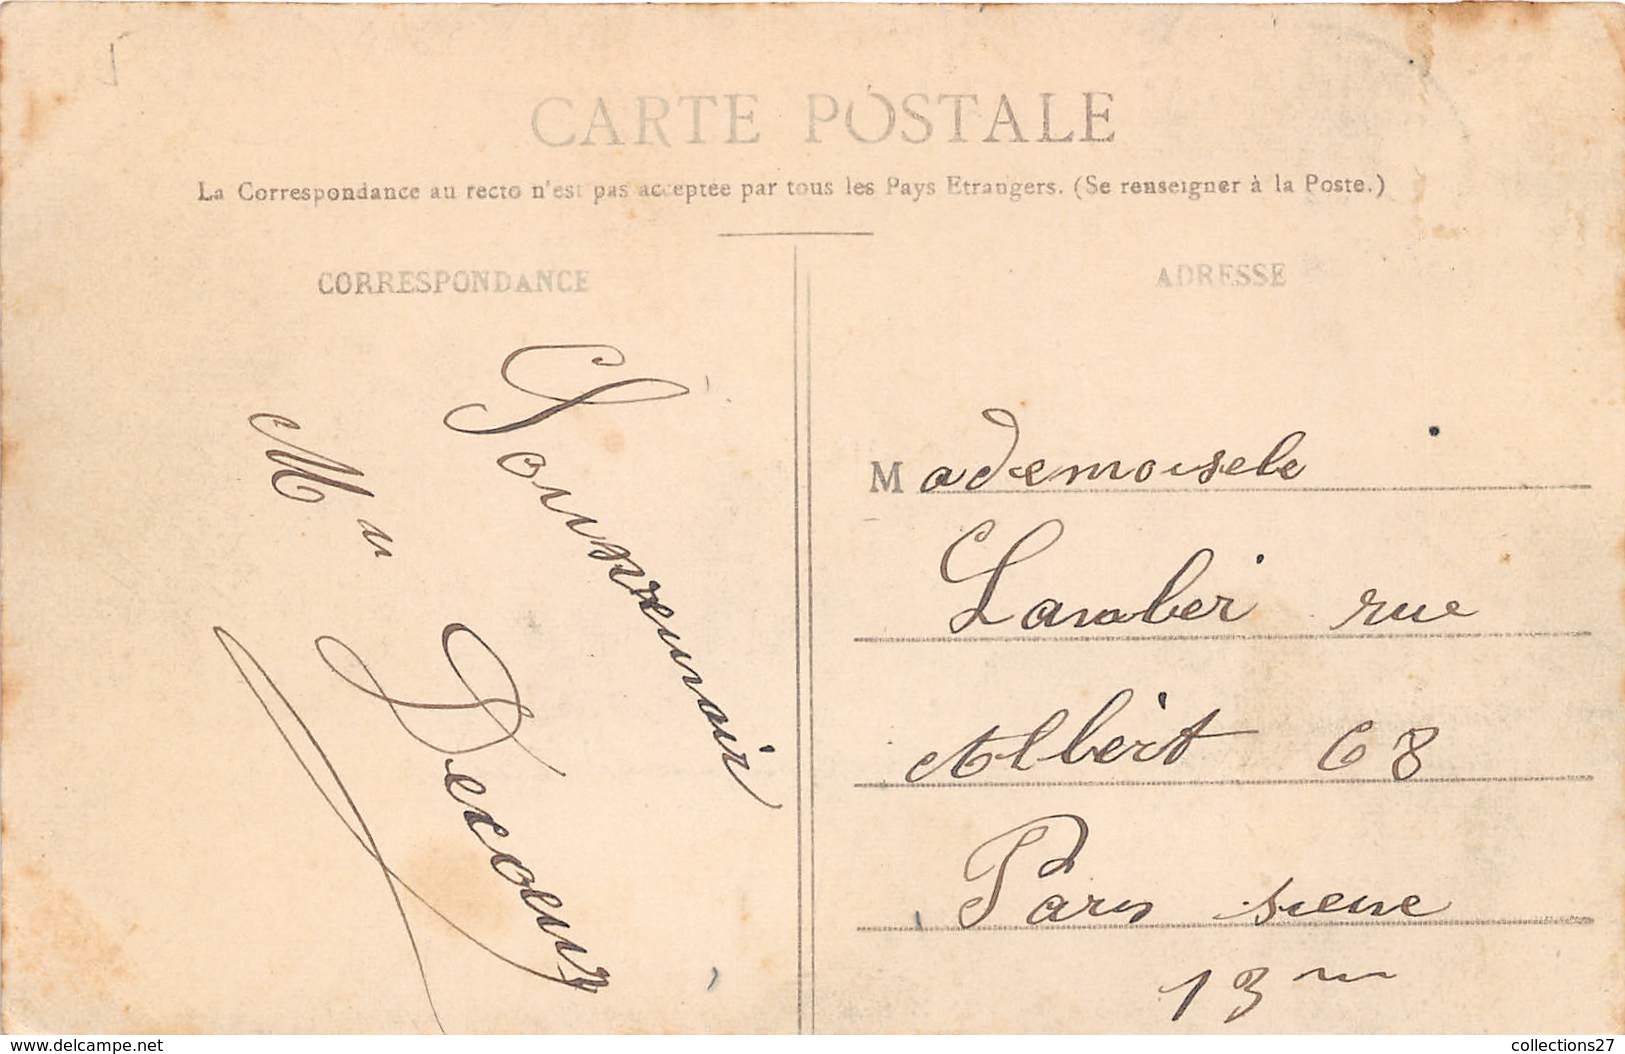 CARTE POSTALE
La Correspondance au recto n'est pas acceptée par tous les Pays Etrangers. (Se renseigner à la Poste.)
CORRESPONDANCE
Souvenir
M
Decoeur
ADRESSE
Mademoisele
Lamber rue
Albert 68
Paris seine
13
www.delcampe.net
collections27